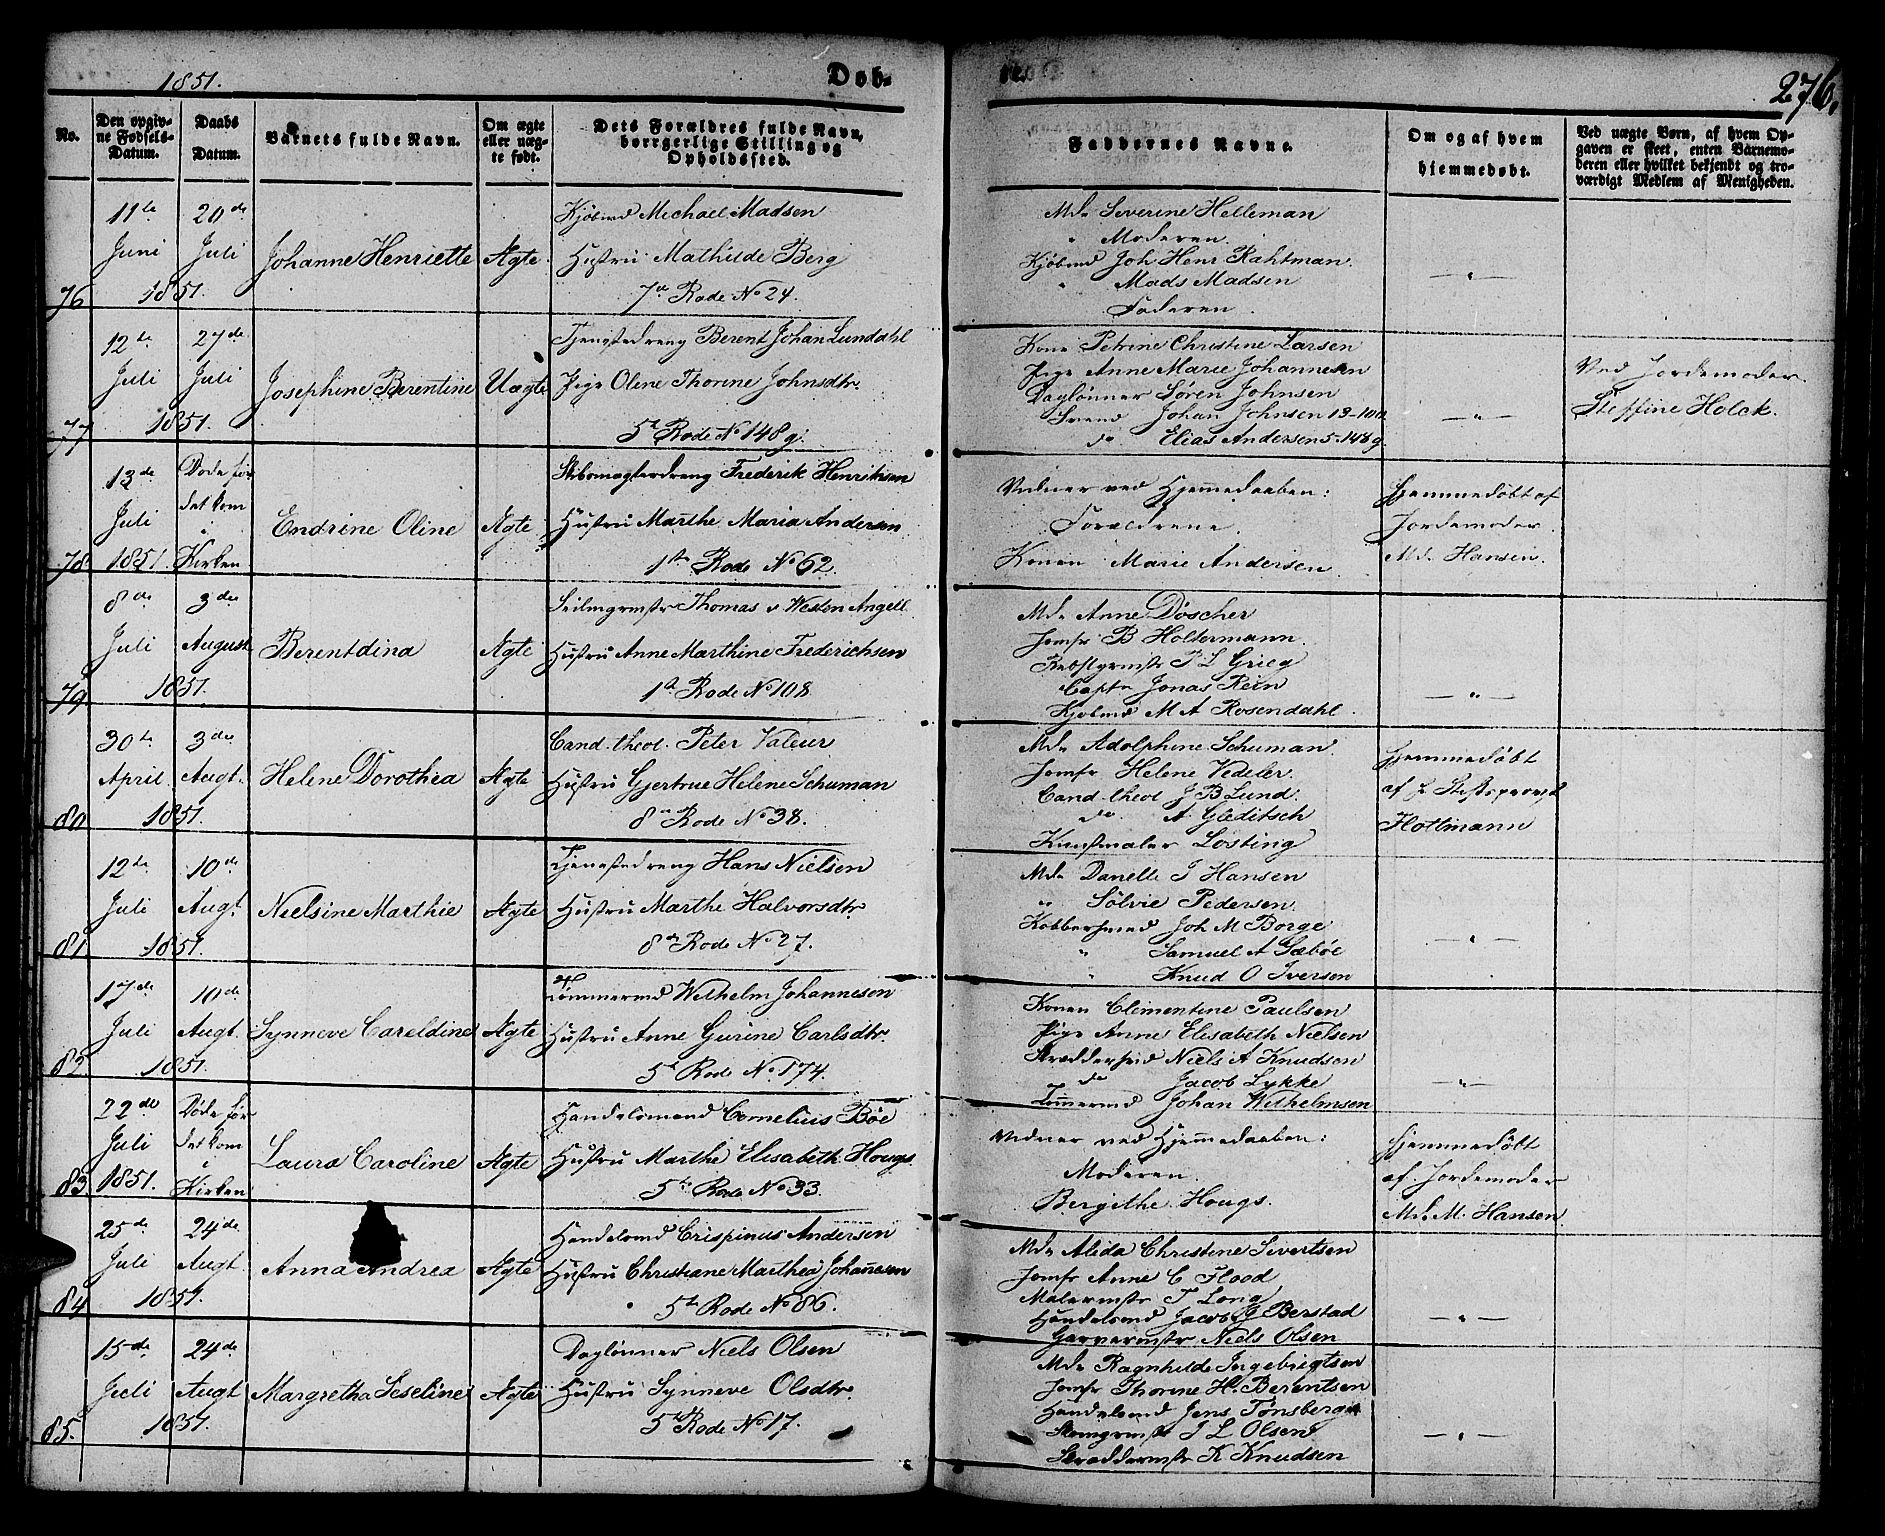 1851.
Døb-
276.
No.
Den opgiv-
ne Fødsels-
Datum.
Daabs
Datum.
Barnets fulde Navn.
Om ægte
eller uæg-
te født.
Dets Forældres fulde Navn,
borgerlige Stilling og
Opholdssted.
Faddernes Navne.
Om og af hvem
hjemmedøbt.
Ved uægte Børn, af hvem Op-
gaven er skeet, enten Barnemo-
deren eller hvilket bekjendt og tro-
værdigt Medlem af Menigheden.
76
11te Juni 1851.
20de Juli
Johanne Henriette
Ægte
Kjøbmd Michael Madsen
Hustru Mathilde Berg
7de Rode No 24.
Md. Severine Helleman
" Moderen.
Kjøbmd Joh Henr Rahtman.
" Mads Madsen
Faderen.
— " —
77
12te Juli 1851.
27de Juli
Josephine Berentine
Uægte
Tjenestedreng Berent Johan Lunddahl
Pige Oline Thorine Johnsdtr.
5te Rode No 148 g.
Kone Petrine Christine Larsen
Pige Anne Marie Johannesen
Daglønner Søren Johnsen
Svend Johan Johnsen 13-100
do Elias Andersen 5-148g.
— " —
Ved Jordemoder
Steffine Holck.
78
13de Juli 1851
Døde før
det kom
i
Kirken
Endrine Oline
Ægte
Skibsmagterdreng Frederik Henriksen
Hustru Marthe Maria Andersen
1te Rode No 62.
Vidner ved Hjemmedaaben:
Forældrene.
Konen Marie Andersen.
Hjemmedøbt af
Jordemoder.
Md. Hansen.
79
8de Juli 1851.
3die August
Berentdina
Ægte
Seilmgrmstr Thomas v Westen Angell
Hustru Anne Marthine Frederichsen
1te Rode No 108.
Md. Anne Døscher
Jomfr B Holtermann.
Rebslgrmstr P L Grieg
Captn Jonas Rein
Kjøbmd M A Rosendahl.
— " —
80
30te April 1851.
3die Augt.
Helene Dorothea
Ægte
Cand. theol. Peter Valeur
Hustru Gjertrue Helene Schuman
8de Rode No 38.
Md. Adolphine Schuman.
Jomfr Helene Vedeler.
Cand. theol J B Lund.
do. A Gleditsch
Kunstmaler Losting
Hjemmedøbt
af Stiftsprovst
Hottmann
81.
12te Juli 1851.
10de Augt.
Nielsine Marthie
Ægte
Tjenestedreng Hans Nielsen
Hustru Marthe Halvorsdtr.
8de Rode No 27.
Md. Danelle J Hansen
" Sølvie Pedersen.
Kobbersmed Joh M Borge
" Samuel A Sæbøe
" Knud O Iversen
— " —
82
17de Juli 1851.
10de Augt.
Synneve Careldine
Ægte
Tømmermd Wilhelm Johannesen
Hustru Anne Gurine Carlsdtr.
5te Rode No 174.
Konen Clementine Paulsen
Pige Anne Elisabeth Nielsen
Skrædderswd Niels A Knudsen
do Jacob Lykke
Tømermd Johan Wilhelmsen
— " —
83
22de Juli 1851.
Døde før
det kom
i
Kirken
Laura Caroline
Ægte
Handelsmand Cornelius Bøe
Hustru Marthe Elisabeth Hougs.
5te Rode No 33.
Vidner ved Hjemmedaaben:
Moderen.
Bergithe Hougs.
Hjemmedøbt
af Jordemoder
Md. M. Hansen
84
25de Juli 1851.
24de Augt.
Anna Andrea
Ægte
Handelsmd Crispinus Andersen
Hustru Christiane Marthea Johannesen
5te Rode No 86.
Md. Alida Christine Sivertsen
Jomfr Anne C Flood
Malermstr T Long
Handelsmd Jacob G Berstad
Garvermstr Niels Olsen
— " —
85.
15de Juli 1851.
24de Augt
Margretha Seseline
Ægte
Daglønner Niels Olsen
Hustru Synneve Olsdtr.
5te Rode No 17.
Md. Ragnhilde Ingebrigtsen
Jomfr Thorine H. Berentsen
Handelsmd Jens Tønsberg
J L Olsen
Skræddermstr K Knudsen
— " —